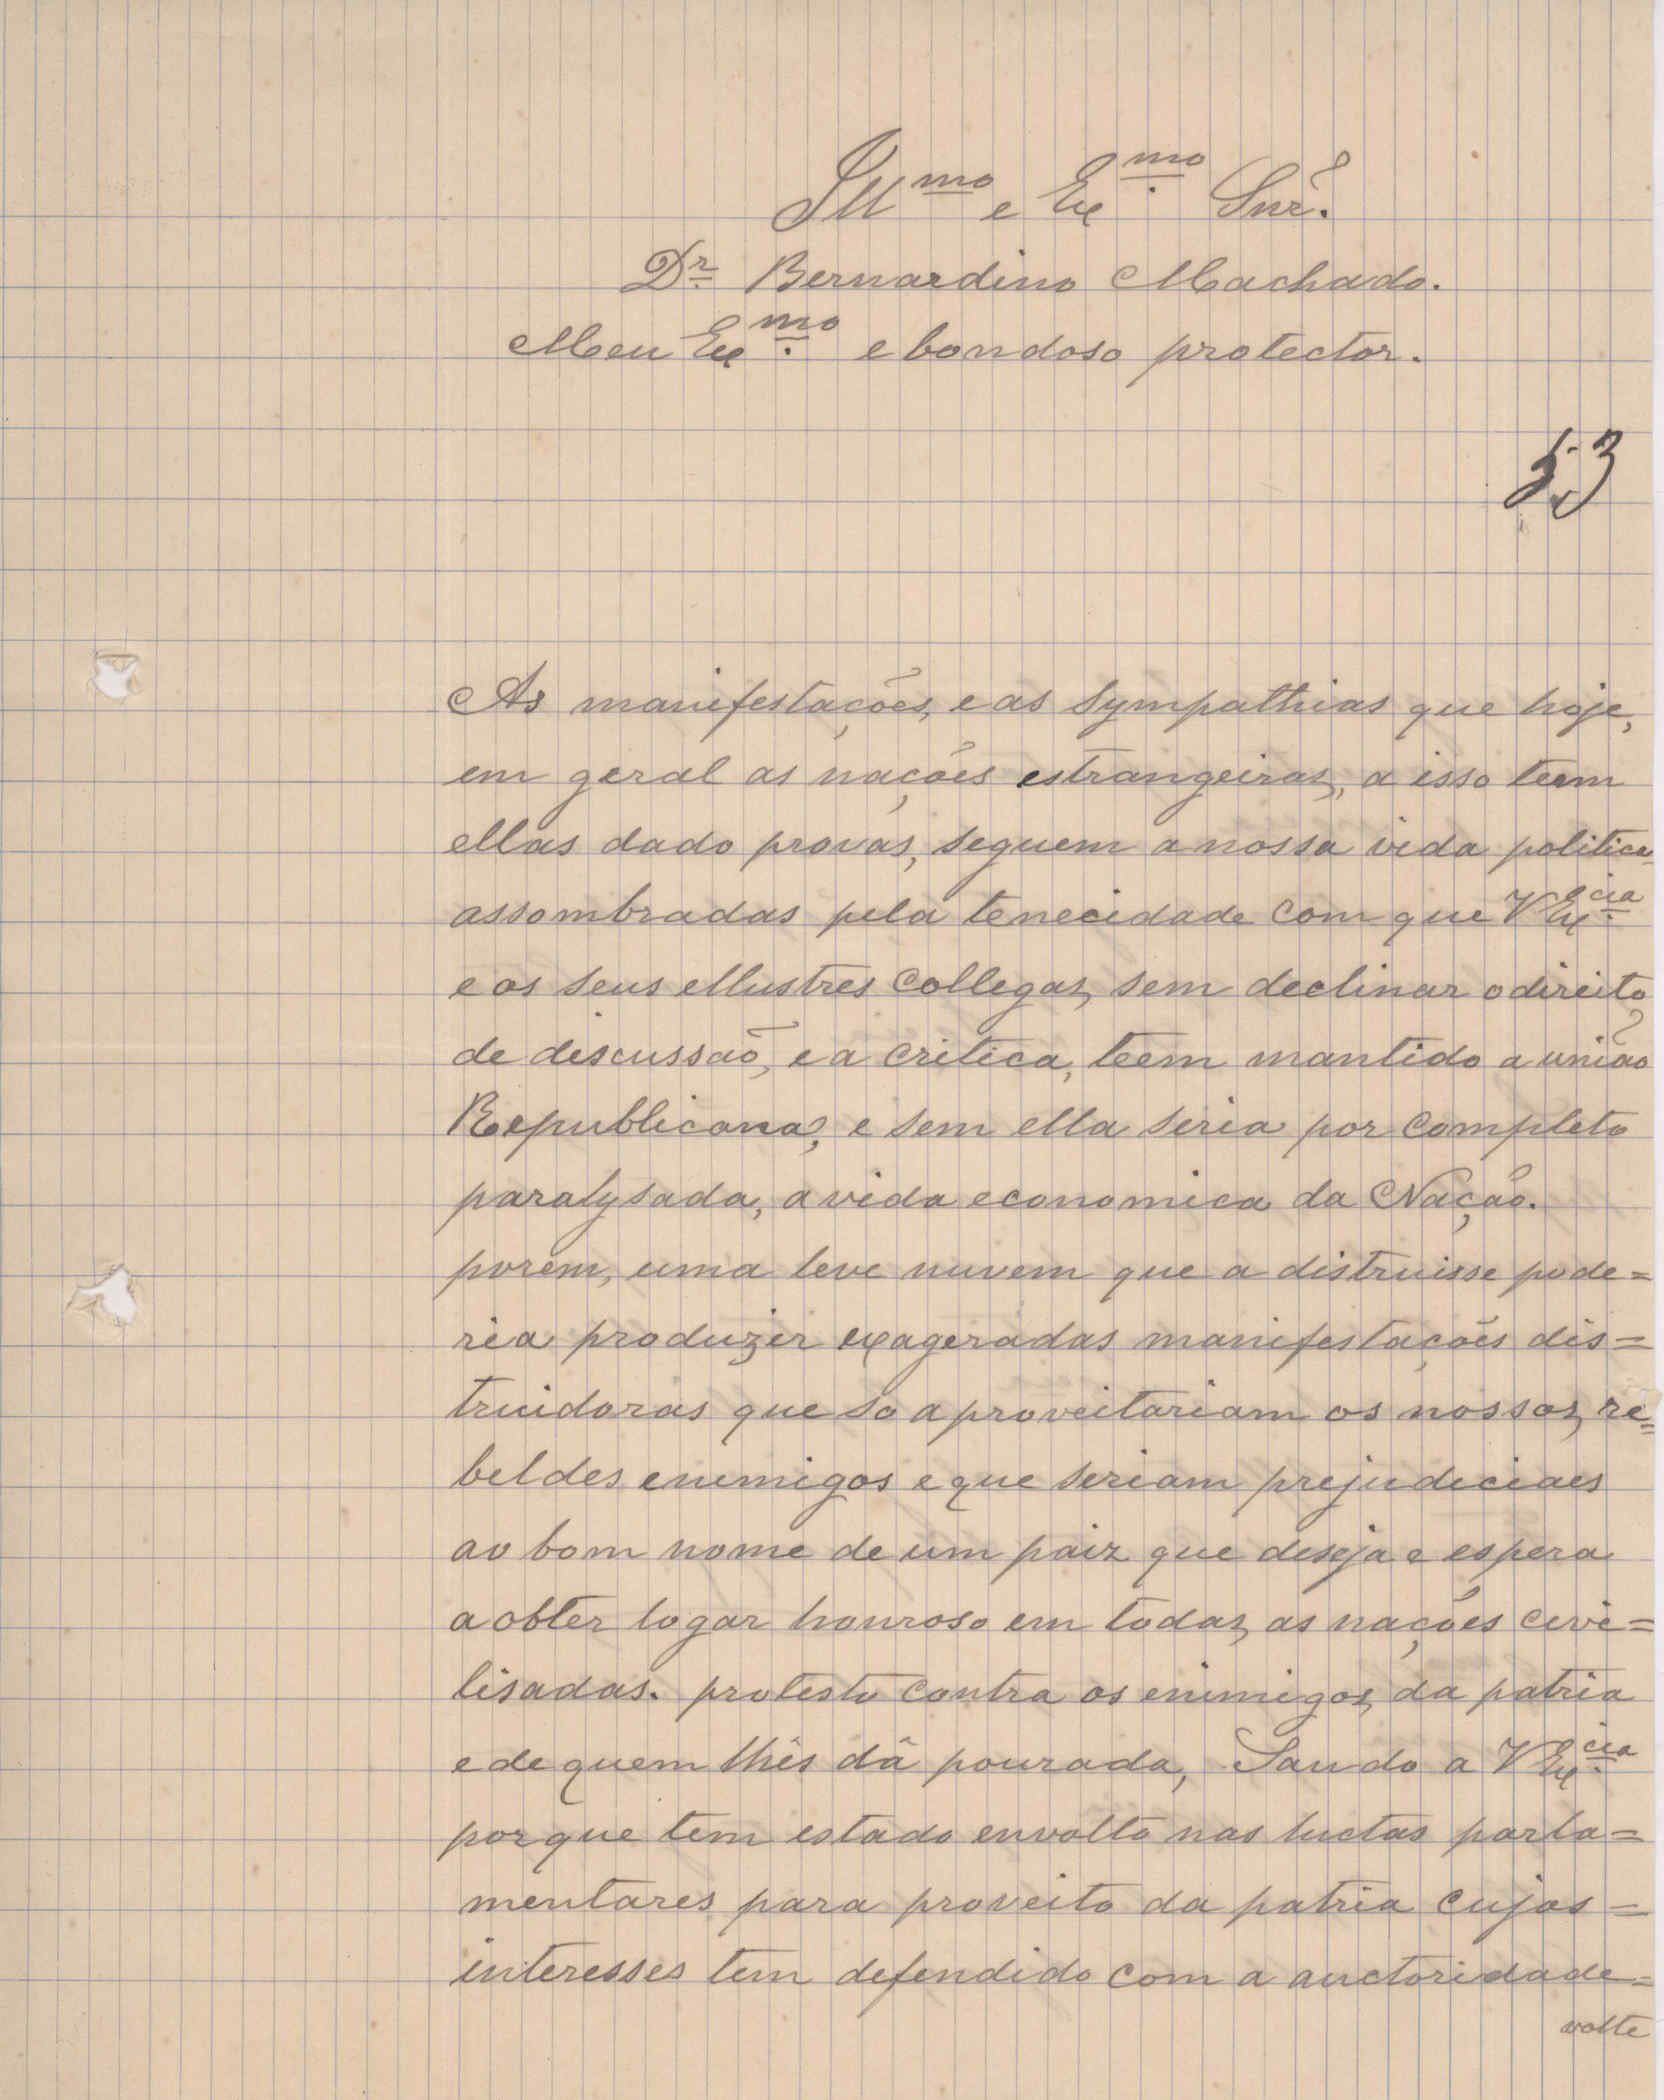 Illmo e Exmo Snr.
Dr Bernardino Machado.
Meu Exmo e bondoso protector.
53
As manifestações, e as sympathias que hoje,
em geral as nações estrangeiras, a isso teem
ellas dado provas, seguem a nossa vida politica
assombradas pela tenecidade com que VExcia
e os seus ellustres collegas, sem declinar o direito
de discussão, e a critica, teem mantido a união
Republicana, e sem ella seria por completo
paralysada, a vida economica da Nação.
porem, uma leve nuvem que a distruisse pode=
ria produzir exageradas manifestações dis=
truidoras que so aproveitariam os nossos, re=
beldes enemigos e que seriam prejudeciaes
ao bom nome de um paiz que deseja e espera
a obter logar honroso em todas, as nações ceve=
lisadas. protesto contra os enimigos, da patria
e de quem lhês dâ pourada, Saudo a VExcia
porque tem estado envolto nas luctas parla=
mentares para proveito da patria cujos=
interesses tem defendido com a auctoridade=
volte